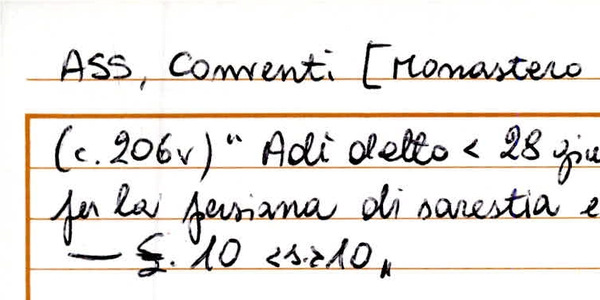 ASS, Conventi [Monastero
(c. 206v) "Adì detto < 28 giu
per la persiana di sarestia e
— £. 10 <s.> 10„